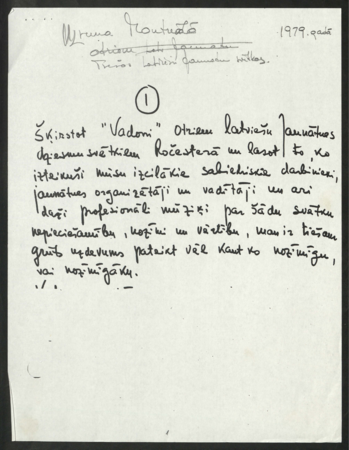 Uzruna Montreālā 1979. gada
Otriem Lat. Jaunatnes
Trešos latviešu Jaunatnes svētkos.
1
Šķirstot "Vadoni" Otriem Latviešu Jaunatnes
dziesmu svētkiem Ročesterā un lasot to, ko
izteikuši mūsu izcilākie sabiedriskie darbinieki,
jaunatnes organizētāji un vadītāji un arī
daži profesionāli mūziķi par šādu svētku
nepieciešamību, nozīmi un vērtību, man iz tiešām
grūts uzdevums pateikt vēl kaut ko nozīmīgu,
vai nozīmīgāku.